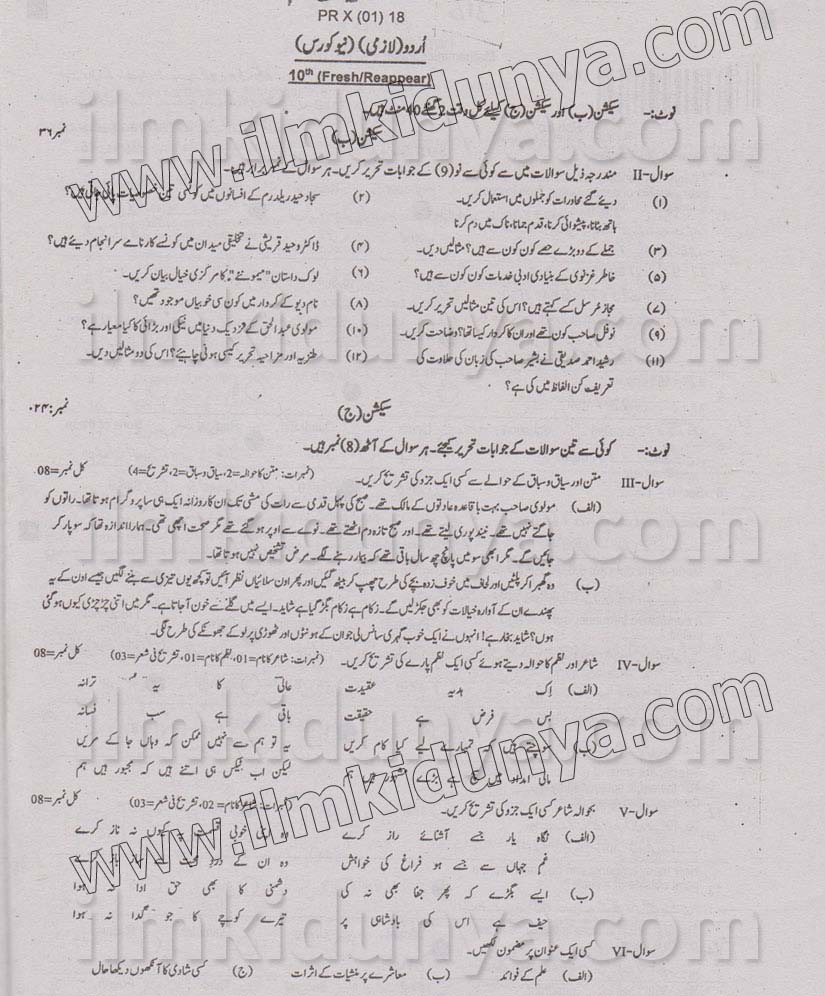 PR X (01) 18
اُردو (لازمی) (نیو کورس)
10th (Fresh/Reappear)
نوٹ:- سیکشن (ب) اور سیکشن (ج) کیلئے کل وقت 2 گھنٹے 40 منٹ ہیں۔
سیکشن (ب) نمبر ۳۶
سوال-II مندرجہ ذیل سوالات میں سے کوئی سے نو (9) کے جوابات تحریر کریں۔ ہر سوال کے نمبر برابر ہیں۔
(۱) دیے گئے محاورات کو جملوں میں استعمال کریں۔ (۲) سجاد حیدر یلدرم کے افسانوں میں کونسی تین خصوصیات پائی جاتی ہیں؟
ہاتھ بٹانا، پیشوائی کرنا، قدم جمانا، ناک میں دم کرنا
(۳) جملے کے دو بڑے حصے کون کون سے ہیں؟ مثالیں دیں۔ (۴) ڈاکٹر وحید قریشی نے تخلیقی میدان میں کونسے کارنامے سرانجام دیئے ہیں؟
(۵) خاطر غزنوی کے بنیادی ادبی خدمات کون کون سے ہیں؟ (۶) لوک داستان "میمونے" کا مرکزی خیال بیان کریں۔
(۷) مجاز مُرسل کسے کہتے ہیں؟ اس کی تین مثالیں تحریر کریں۔ (۸) نام دیو کے کردار میں کون سی خوبیاں موجود تھیں؟
(۹) نوفل صاحب کون تھے اور ان کا کردار کیسا تھا؟ وضاحت کریں۔ (۱۰) مولوی عبدالحق کے نزدیک دنیا میں نیکی اور بڑائی کا کیا معیار ہے؟
(۱۱) رشید احمد صدیقی نے بشیر صاحب کی زبان کی حلاوت کی (۱۲) طنزیہ اور مزاحیہ تحریر کیسی ہونی چاہیئے؟ اس کی دو مثالیں دیں۔
تعریف کن الفاظ میں کی ہے؟
سیکشن (ج) نمبر: ۰۲۴
نوٹ:- کوئی سے تین سوالات کے جوابات تحریر کیجئے۔ ہر سوال کے آٹھ (8) نمبر ہیں۔
سوال-III متن اور سیاق و سباق کے حوالے سے کسی ایک جزو کی تشریح کریں۔ (نمبرات: متن کا حوالہ=2، سیاق و سباق=2، تشریح=4) کل نمبر=08
(الف) مولوی صاحب بہت باقاعدہ عادتوں کے مالک تھے۔ صبح کی چہل قدمی سے رات کی مشی تک ان کا روزانہ ایک ہی سا پروگرام ہوتا تھا۔ راتوں کو
جاگتے نہیں تھے۔ نیند پوری لیتے تھے۔ اور صبح تازہ دم اٹھتے تھے۔ نوے سے اوپر ہو گئے تھے مگر صحت اچھی تھی۔ ہمارا اندازہ تھا کہ سو پار کر
جائیں گے۔ مگر ابھی سو میں پانچ چھ سال باقی تھے کہ بیمار رہنے لگے۔ مرض تشخیص نہیں ہوتا تھا۔
(ب) وہ گھبرا کر پلٹیں اور لحاف میں خوف زدہ بچے کی طرح چھپ کر بیٹھ گئیں اور پھر اون سلائیاں نظر آئیں تو کچھ یوں تیزی سے بننے لگیں جیسے اون کے یہ
پھندے ان کے آوارہ خیالات کو بھی جکڑ لیں گے۔ زکام ہے زکام بگڑ گیا ہے شاید۔ ایسے میں گلے سے خون آ جاتا ہے۔ مگر میں اتنی چڑچڑی کیوں ہو گئی
ہوں؟ شاید بخار ہے! انہوں نے ایک خوب گہری سانس لی جو ان کے ہونٹوں اور ٹھوڑی پر لو کے جھونکے کی طرح لگی۔
سوال-IV شاعر اور نظم کا حوالہ دیتے ہوئے کسی ایک نظم پارے کی تشریح کریں۔ (نمبرات: شاعر کا نام=01، نظم کا نام=01، تشریح فی شعر=03) کل نمبر=08
(الف) اِک ہدیہ عقیدت عالی کا یہ ترانہ
بس فرض ہے حقیقت باقی ہے سب فسانہ
(ب) سوچتے ہیں کہ تمہارے لیے کیا کام کریں یہ تو ہم سے نہیں ممکن کہ وہاں جا کے مریں
مالی امداد میں ہے بڑے ہیں ہم لیکن اب ٹیکس ہی اتنے ہیں کہ مجبور ہیں ہم
سوال-V بحوالہ شاعر کسی ایک جزو کی تشریح کریں۔ (نمبرات: شاعر کا نام=02، تشریح فی شعر=03) کل نمبر=08
(الف) نگاہ یار جسے آشنائے راز کرے وہ اپنی خوبی قسمت پہ کیوں نہ ناز کرے
غم جہاں سے جسے ہو فراغ کی خواہش وہ ان کے درد محبت سے ساز باز کرے
(ب) ایسے بگڑے کہ پھر جفا بھی نہ کی دشمنی کا بھی حق ادا نہ ہوا
حیف ہے اس کی بادشاہی پر تیرے کوچے کا جو گدا نہ ہوا
سوال-VI کسی ایک عنوان پر مضمون لکھیں۔
(الف) علم کے فوائد (ب) معاشرے پر منشیات کے اثرات (ج) کسی شادی کا آنکھوں دیکھا حال
www.ilmkidunya.com
www.ilmkidunya.com
ilmkidunya.com
ilmkidunya.com
ilmkidunya.com
ilmkidunya.com
ilmkidunya.com
ilmkidunya.com